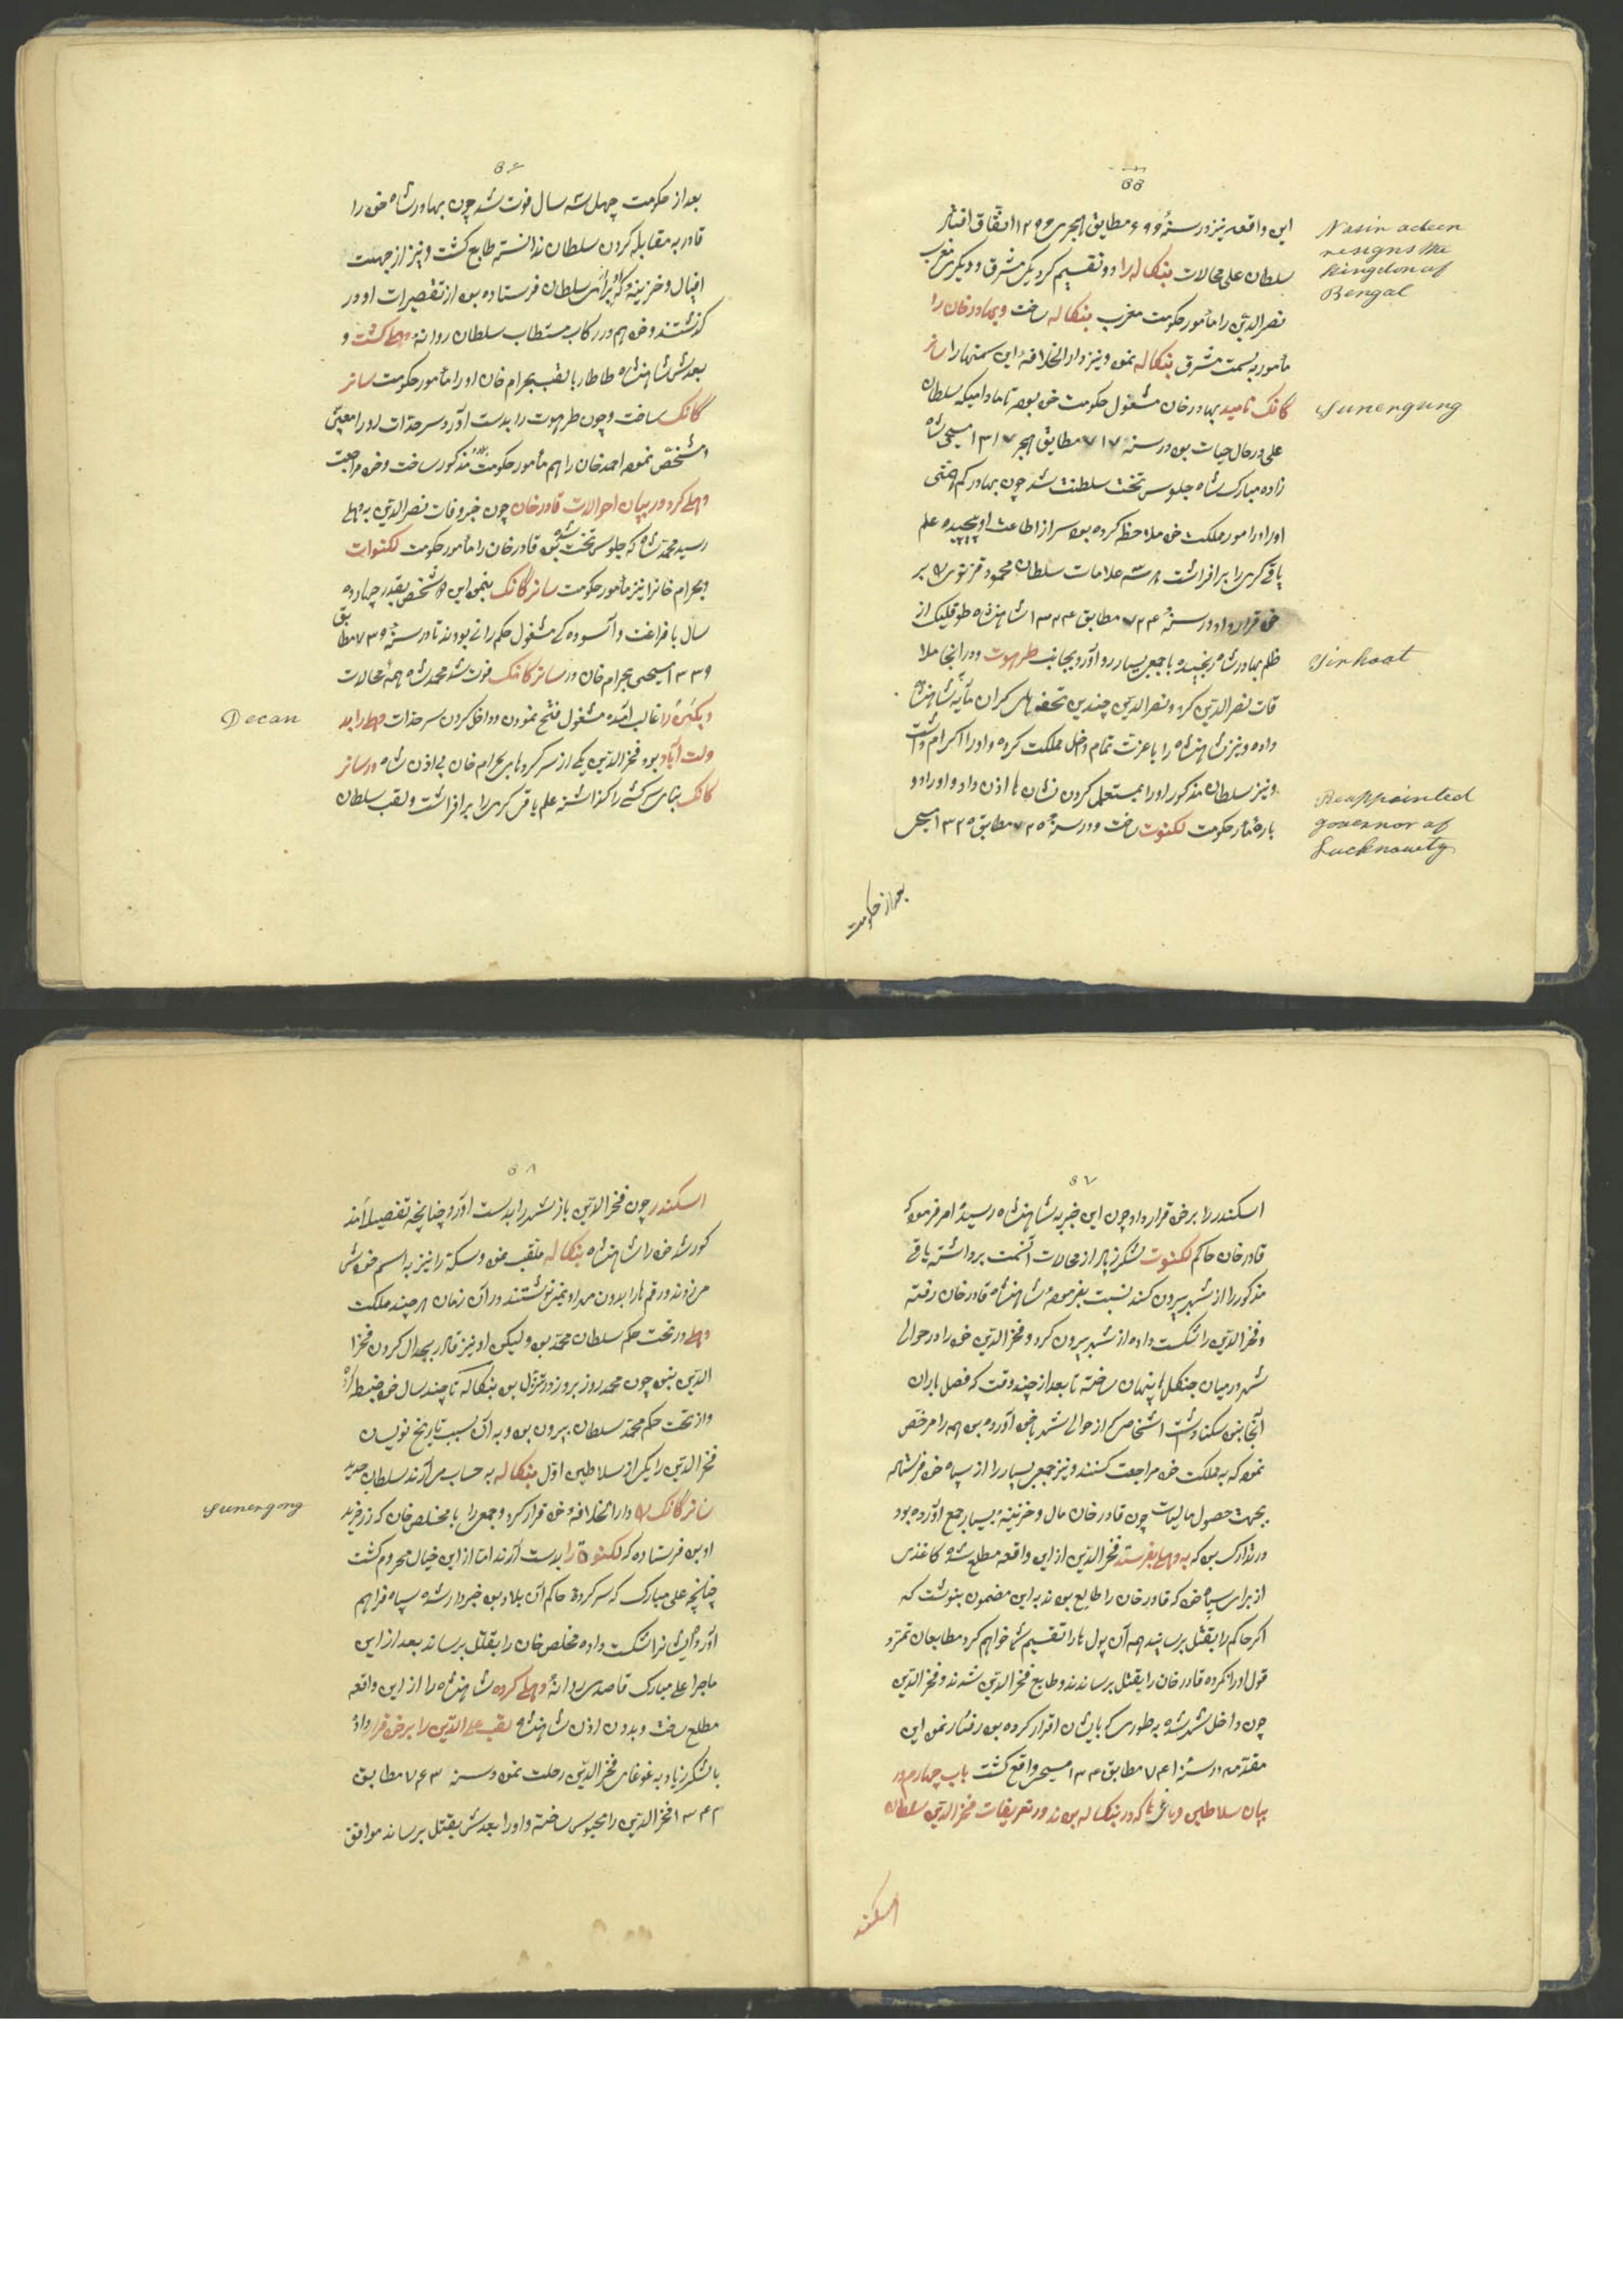 ۵۵
این واقعه نیز در سنهٔ ۶۹۹ مطابق هجری ۱۲۹۹ اتفاق افتاد
سلطان علی محالات بنکاله را دو تقسیم کرد یکی مشرق و دیگری مغرب
نصر الدین را مأمور حکومت مغرب بنکاله ساخت و بهادر خان را
مأمور بسمت مشرق بنکاله نمود و نیز دار الخلافهٔ این سمتها را سانر
کانک نامید بهادر خان مشغول حکومت خود بوده تا مادامیکه سلطان
علی در حال حیات بود در سنه ۷۱۷ مطابق هجر ۱۳۱۷ مسیحی شاه
زاده مبارک شاه جلوس تخت سلطنت شد چون بهادر کم همتی
او را در امور مملکت خود ملاحظه کرده بود سر از اطاعت او پیچیده علم
یاقی کری را برافراشت
خود قرار داد در سنهٔ ۷۲۴ مطابق ۱۳۲۴ شاهنشاه طوقلیک از
ظلم بهادر شاه رنجیده با جمع بسیار رو آورد بجانب طرهوت و در آنجا ملا
قات نصر الدین کرد و نصر الدین چندین تحفه های کران مآیه شاهنشاه
داده و نیز شاهنشاه را با عزت تمام داخل مملکت کرده و او را اکرام داشت
و نیز سلطان مذکور او را بمستعمل کردن نشان ها اذن داد و او را دو
باره مأمور حکومت لکنوت ساخت و در سنهٔ ۷۲۵ مطابق ۱۳۲۵ مسیحی
بعد از حکومت
Nasir adeen
resigns the
kingdon of
Bengal
Sunergung
Tirhoot
Reappointed
governor of
Lucknowty
۵۶
بعد از حکومت چهل سه سال فوت شد چون بهادر شاه خود را
قادر به مقابله کردن سلطان ندانسته طابع کشت و نیز از جهت
افیال و خزینه که او برای سلطان فرستاده بود از تقصیرات او در
کذشتند و خود هم در رکاب مستطاب سلطان روانهٔ دهلی کشت و
بعدش شاهنشاه طاطار با لقب بحرام خان او را مأمور حکومت سانر
گانک ساخت و چون طرهوت را بدست آورد سرحدات او را معین
و مشخص نموده احمد خان را هم مأمور حکومت مذکور ساخت و خود مراجعت
دهلی کرد در بیان احوالات قادر خان چون خبر وفات نصر الدین به دهلی
رسید محمد شاه که جلوس تخت شده بود قادر خان را مأمور حکومت لکنوات
و بحرام خان را نیز مأمور حکومت سانر گانک بنمود این دو شخص بقدر چهارده
سال با فراغت و آسوده کی مشغول حکم رانی بودند تا در سنهٔ ۷۳۹ مطابق
۱۳۳۹ مسیحی بحرام خان در سانر کانک فوت شد محمد شاه همهٔ محالات
دیکن را غالب آمده مشغول فتح نمودن و داخل کردن سرحدات دهلی را به
ولت آباد بود فخر الدین یکی از سر کرده های بحرام خان بی اذن شاه در سانر
کانک بنای سرکشی را کذاشته علم یاقی کری را برافراشت و لقب سلطان
Decan
۵۷
اسکندر را بر خود قرار داد چون این خبر به شاهنشاه رسید امر فرمود که
قادر خان حاکم لکنوت لشکر زیاد از محالات آنسمت برداشته یاقی
مذکور را از شهر بیرون کند نسبت بفرمودهٔ شاهنشاه قادر خان رفته
و فخر الدین را شکست داده از شهر بیرون کرد و فخر الدین خود را در حوالی
شهر در میان جنکلها پنهان ساخته تا بعد از چند وقت که فصل باران
آنجا بنمود سکنا داشت اشخاص که از حوالی شهر با خود آورده بود همه را مرخص
نمود که به مملکت خود مراجعت کنند و نیز جمع بسیار را از سپاه خود فرستاده
بجهت حصول مالیات چون قادر خان مال و خزینهٔ بسیار جمع آورده بود
در تدارک بود که به دهلی بفرستد فخر الدین از این واقعه مطلع شده کاغذی
از برای سپاه خود که قادر خان را طابع بودند به این مضمون بنوشت که
اکر حاکم را بقتل برسانید همه آن پول ها را تقسیم شما خواهم کرد مطابعان تمرد
قول او را نکرده قادر خان را بقتل برساندند و طابع فخر الدین شدند و فخر الدین
چون داخل شهر شده به طوری که با یشان اقرار کرده بود رفتار نمود این
مقدمه در سنهٔ ۷۴۱ مطابق ۱۳۴۰ مسیحی واقع کشت باب چهارم در
بیان سلاطین و یاغی ها که در بنکاله بودند در تعریفات فخر الدین سلطان
اسکند
۵۸
اسکندر چون فخر الدین باز شهر را بدست آورد چنانچه تفصیلاً مذ
کور شد خود را شاهنشاه بنکاله ملقب نمود و سکه را نیز به اسم خودش
میزدند و رقم ها را بدون مهر او نمینوشتند در آن زمان هر چند مملکت
دهلی در تحت حکم سلطان محمد بود ولیکن او نیز قادر بجدال کردن فخر ا
لدین بنبود چون محمد روز بروز در تنزل بود بنکاله تا چند سال خود ضبط
و از تحت حکم محمد سلطان بیرون بود و به آن سبب تاریخ نویسان
فخر الدین را یکی از سلاطین اول بنکاله به حساب می آرند سلطان جدید
سانر گانک را دار الخلافهٔ خود قرار کرد و جمعی را با مخلص خان که زر خرید
او بود فرستاده که لکنوة را بدست آرند اما از این خیال محروم کشت
چنانچه علی مبارک که سر کردهٔ حاکم آن بلاد بود خبردار شده سپاه فراهم
آورد و ایشانرا شکست داده مخلص خان را بقتل برساند بعد از این
ماجرا علی مبارک قاصدی روانهٔ دهلی کرده شاهنشاه را از این واقعه
مطلع ساخت و بدون اذن شاهنشاه لقب علا الدین را بر خود قرار داد
با لشکر زیاد به غوغای فخر الدین رحلت نمود و سنه ۷۴۳ مطابق
۱۳۴۲ فخر الدین را محبوس ساخته و او را بعدش بقتل برساند موافق
Sunergong